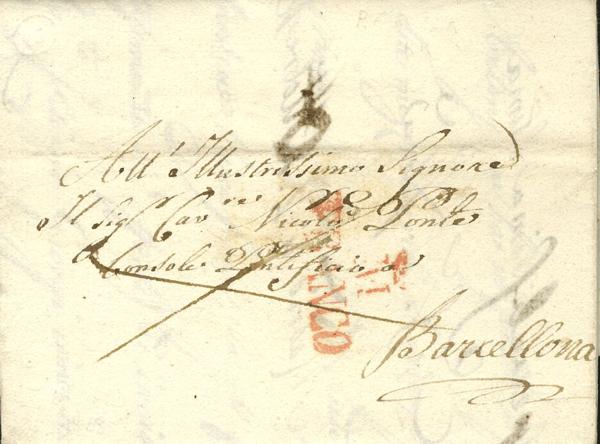 All' Illustrissimo Signore
Il Sigr Cavre Nicola Ponte
Console Pontificio a
Barcellona